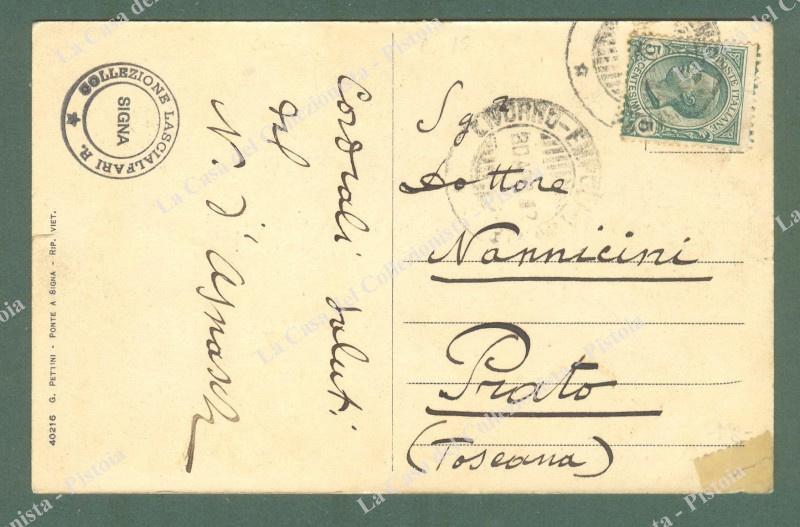 COLLEZIONE LASCIALFARI R.
SIGNA
Cordiali saluti
del
N. d'
40216 G. PETTINI - PONTE A SIGNA - RIP. VIET.
POSTE ITALIANE
CENTESIMI
5 5
LIVORNO
Sgr
Dottore
Nannicini
Prato
(Toscana)
La Casa del Collezionista - Pistoia